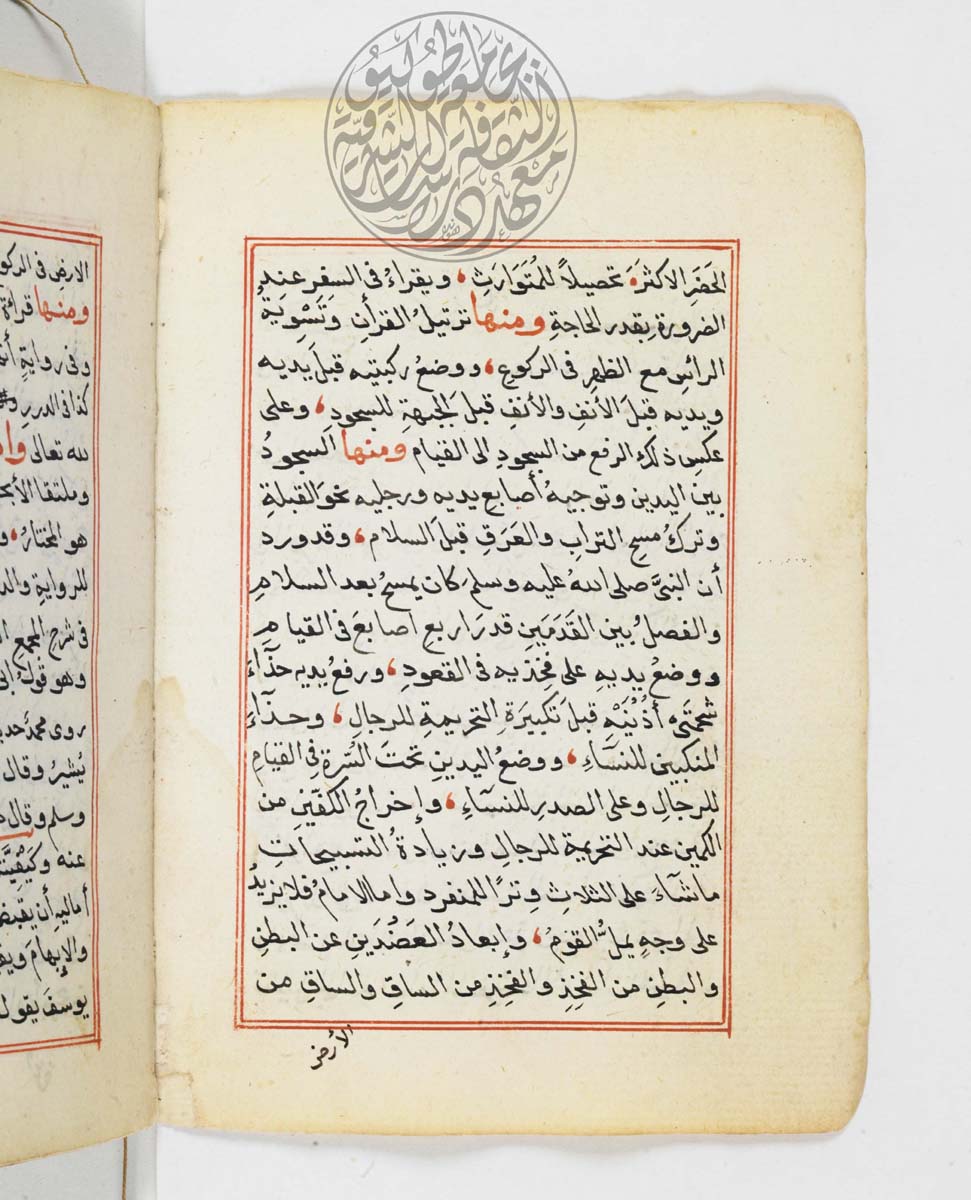 الحَضَرِ الاكثرَ تحصيلاً للمُتَوَارَثِ، ويقراءُ فى السفر عند
الضرورةِ بِقدر الحاجةِ ومنها ترتيلُ القرأنِ وَتَسْوِيَةُ
الرائسِ مع الظهرِ فى الركوعِ، ووضعُ ركبتيه قبلَ يديه
ويديه قبلَ الأنفِ والأنفِ قبلَ الجبهةِ للسجودِ، وعلى
عكسِ ذلك الرفع من السجودِ الى القيام ومنها السجودُ
بين اليدين وتوجيهُ أصابعِ يديه ورجليه نحوَ القبلةِ
وتركُ مسحِ الترابِ والعَرَقِ قبلَ السلام، وقد ورد
أن النبىَّ صلى اللهُ عليه وسلم كان يمسحُ بعد السلامِ
والفصلُ بين القَدَمَينِ قدرَ اربعِ اصابعَ فى القيامِ
ووضعُ يديهِ على فخذيه فى القعودِ، ورفعُ يديه حذَاءَ
شحمتَى أُذُنَيْهِ قبلَ تكبيرَةِ التحريمةِ للرجالِ، وحذاءَ
المنكبين للنسَاءِ، ووضعُ اليدينِ تحتَ السُّرةِ فِى القيامِ
للرجالِ وعلى الصدرِ للنسَاءِ، وإخراجُ الكفَّينِ من
الكمين عند التحريمةِ للرجالِ وزيادةُ التسبيحات
ماشاءَ على الثلاثِ وِترًا للمنفرد واما الامامُ فلا يزيدُ
على وجهٍ يملُّ القومُ، وإبعادُ العَضُدَينِ عن البطنِ
والبطنِ من الفخذِ والفخذِ من الساقِ والساقِ من
الأرض
الارضِ فى الركو
ومنها قراءة
وفى روايةٍ
كذا فى الدرر
لله تعالى
وملتقا الأبحر
هو المختارُ،
للروايةِ
فى شرح المجمع
وهو قولُ
روى محمدٌ
يُشيرُ وقال
وسلم وقال
عنه
أماليهِ أن يقبضَ
والإبهامَ
يوسفَ يقول
معهد الثقافة والدراسات الشرقية
جامعة طوكيو